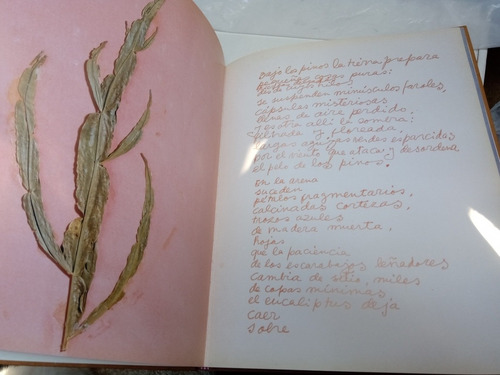 Bajo los pinos la tierra prepara
pequeñas cosas puras:
hierbas delgadas
desde cuyos hilos
se suspenden minúsculos faroles,
cápsulas misteriosas
llenas de aire perdido,
y es otra allí la sombra:
filtrada y floreada,
largas agujas verdes esparcidas
por el viento que ataca y desordena
el pelo de los pinos.
En la arena
suceden
pétalos fragmentarios,
calcinadas cortezas,
trozos azules
de madera muerta,
hojas
que la paciencia
de los escarabajos leñadores
cambia de sitio, miles
de copas mínimas,
el eucaliptus deja
caer
sobre